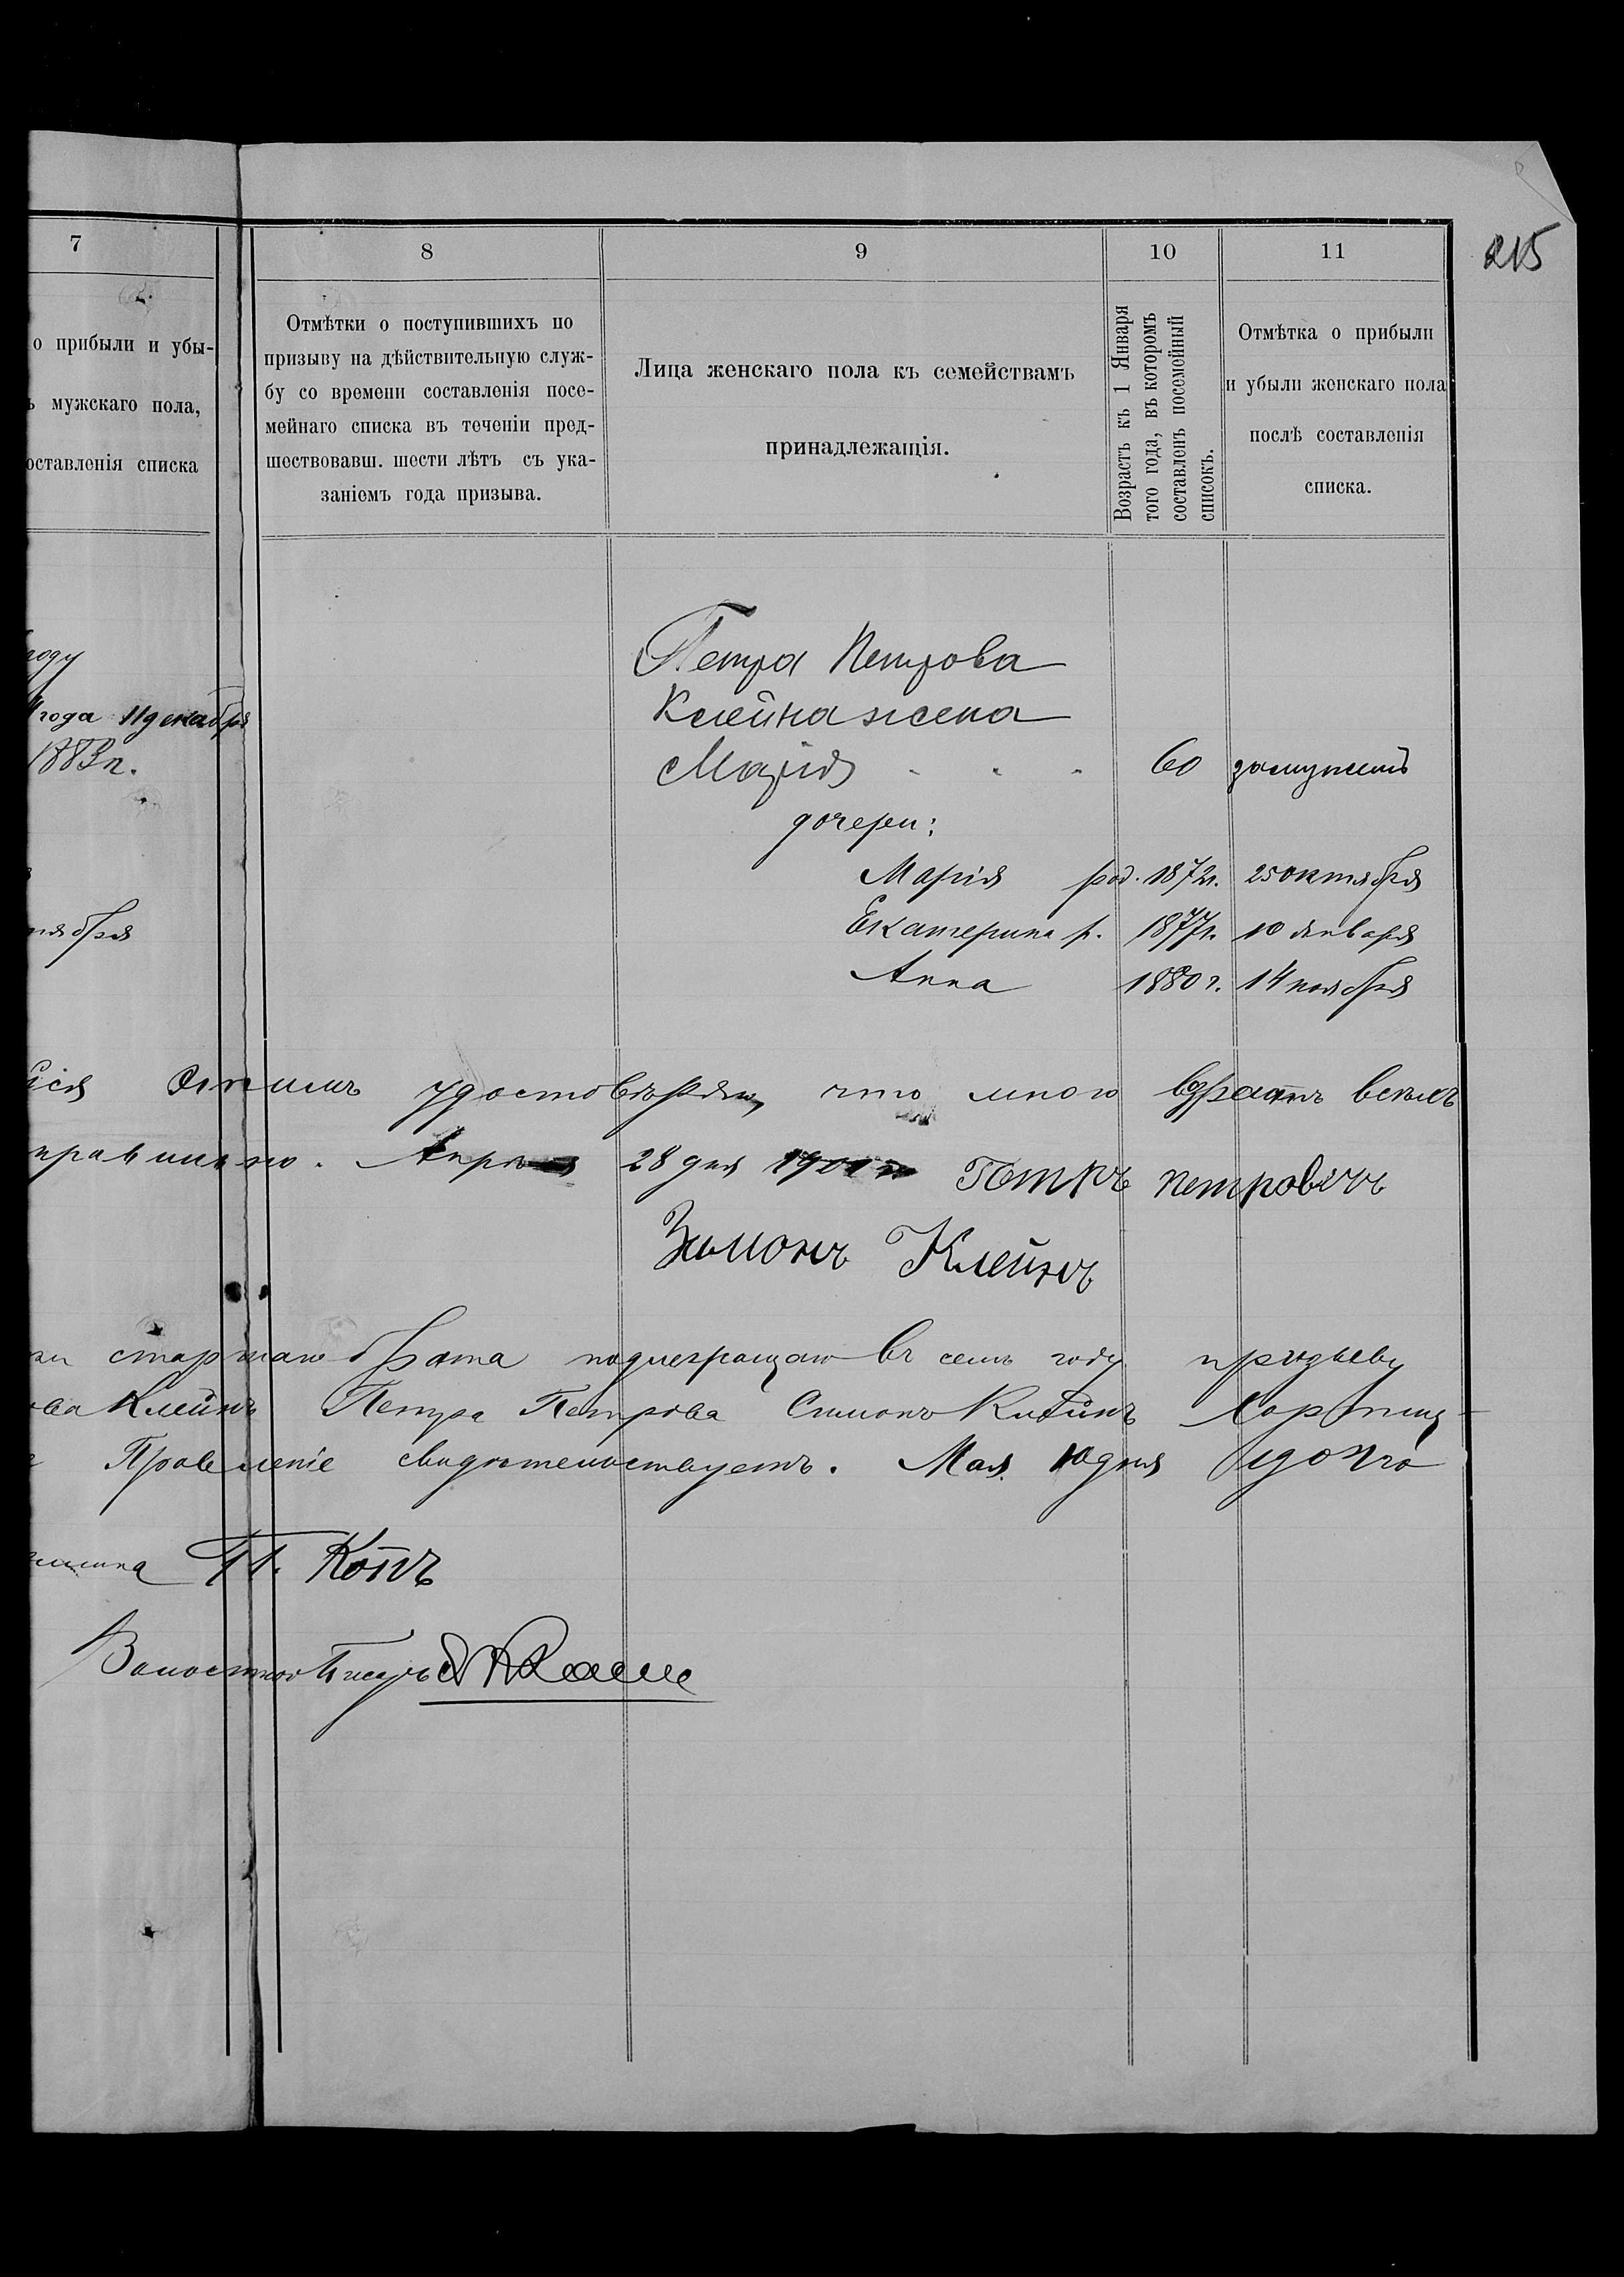 215
7
8
9
10
11
о прибыли и убы-
ъ мужскаго пола,
оставленія списка
Отмѣтки о поступившихъ по
призыву на дѣйствительную служ-
бу со времени составленія посе-
мейнаго списка въ теченіи пред-
шествовавш. шести лѣтъ съ ука-
заніемъ года призыва.
Лица женскаго пола къ семействамъ
принадлежащія.
Возрастъ къ 1 Января
того года, въ которомъ
составленъ посемейный
списокъ.
Отмѣтка о прибыли
и убыли женскаго пола
послѣ составленія
списка.
году
года 11 декабря
1883 г.
ября
Петра Петрова
Клейна жена
Марія 60 замужемъ
дочери:
Марія род. 1872 г. 25 октября
Екатерина р. 1877 г. 10 января
Анна 1880 г. 14 ноября
симъ удостовѣряю, что мною
правильно. Апрѣля 28 дня 1901 г. Петръ Петровичъ
Клейнъ
старшаго брата подлежащаго въ семъ году призыву
ова Клейнъ Петра Петрова Симонъ Клейнъ Хортиц-
Правленіе свидѣтельствуетъ. Мая 10 дня
П.
Волостной Писарь